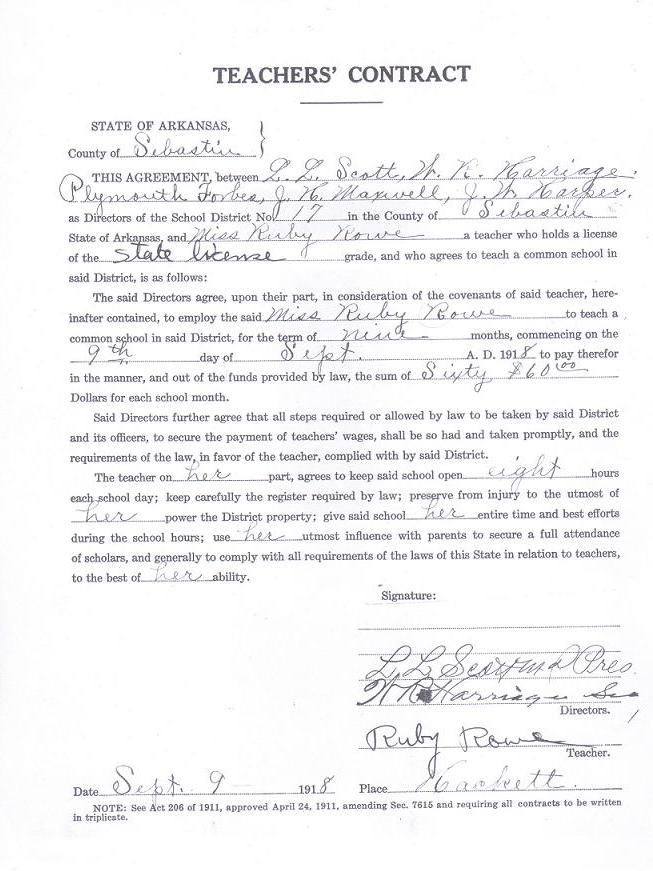 TEACHERS' CONTRACT
STATE OF ARKANSAS,
County of Sebastin
THIS AGREEMENT, between L. L. Scott, W. R. Harriage.
Plymouth Forbes, J. H. Maxwell, J. W. Harper.
as Directors of the School District No. 17 in the County of Sebastin
State of Arkansas, and Miss Ruby Rowe a teacher who holds a license
of the State license grade, and who agrees to teach a common school in
said District, is as follows:
The said Directors agree, upon their part, in consideration of the covenants of said teacher, here-
inafter contained, to employ the said Miss Ruby Rowe to teach a
common school in said District, for the term of nine months, commencing on the
9th day of Sept. A. D. 1918 to pay therefor
in the manner, and out of the funds provided by law, the sum of Sixty $60.00
Dollars for each school month.
Said Directors further agree that all steps required or allowed by law to be taken by said District
and its officers, to secure the payment of teachers' wages, shall be so had and taken promptly, and the
requirements of the law, in favor of the teacher, complied with by said District.
The teacher on her part, agrees to keep said school open eight hours
each school day; keep carefully the register required by law; preserve from injury to the utmost of
her power the District property; give said school her entire time and best efforts
during the school hours; use her utmost influence with parents to secure a full attendance
of scholars, and generally to comply with all requirements of the laws of this State in relation to teachers,
to the best of her ability.
Signature:
L L Scott M D Pres.
W R Harriage Sec
Directors.
Ruby Rowe
Teacher.
Date Sept. 9 1918 Place Hackett.
NOTE: See Act 206 of 1911, approved April 24, 1911, amending Sec. 7615 and requiring all contracts to be written
in triplicate.